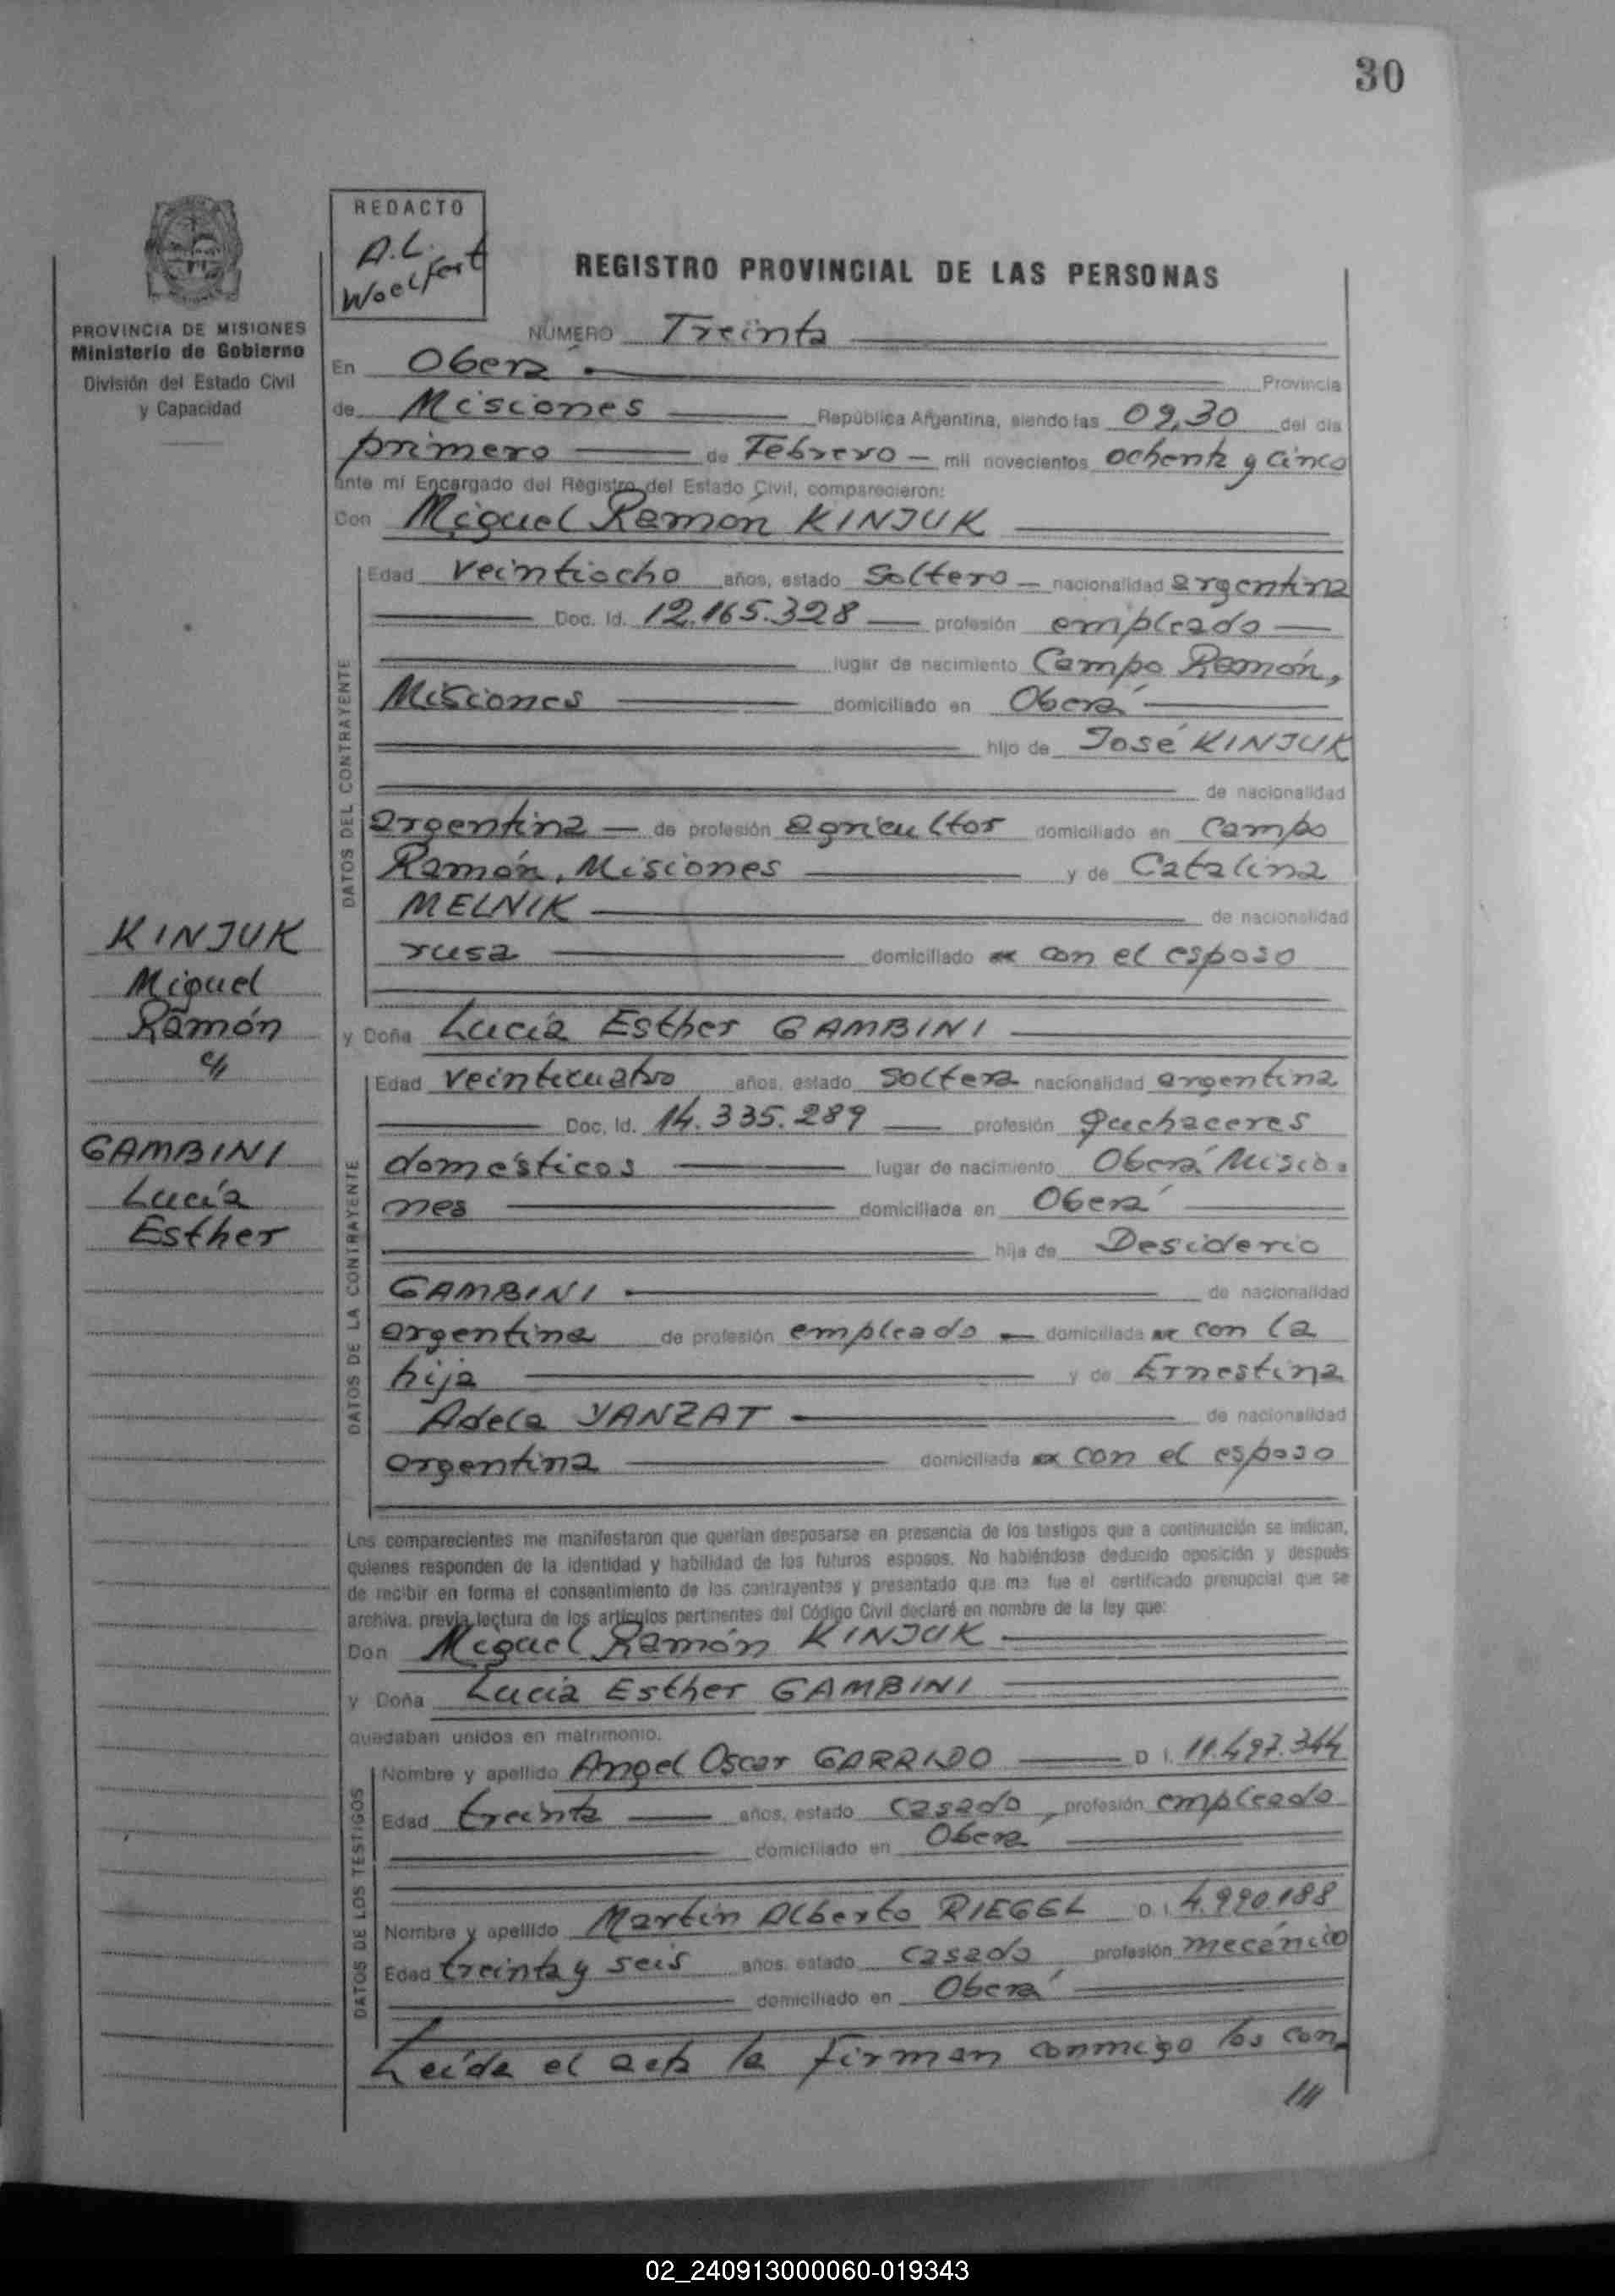 30
REDACTO
A.L.
Woelfert
REGISTRO PROVINCIAL DE LAS PERSONAS
PROVINCIA DE MISIONES
Ministerio de Gobierno
División del Estado Civil
y Capacidad
NÚMERO Treinta
En Oberá Provincia
de Misiones República Argentina, siendo las 09,30 del día
primero de Febrero mil novecientos ochenta y cinco
ante mí Encargado del Registro del Estado Civil, comparecieron:
Don Miguel Ramón KINJUK
DATOS DEL CONTRAYENTE
Edad veintiocho años, estado Soltero nacionalidad argentina
Doc. Id. 12.165.328 profesión empleado
lugar de nacimiento Campo Ramón,
Misiones domiciliado en Oberá
hijo de José KINJUK
de nacionalidad
argentina de profesión agricultor domiciliado en Campo
Ramón, Misiones y de Catalina
MELNIK de nacionalidad
rusa domiciliado con el esposo
KINJUK
Miguel
Ramón
c/
GAMBINI
Lucía
Esther
y Doña Lucía Esther GAMBINI
DATOS DE LA CONTRAYENTE
Edad veinticuatro años, estado Soltera nacionalidad argentina
Doc. Id. 14.335.289 profesión quehaceres
domésticos lugar de nacimiento Oberá Misio=
nes domiciliada en Oberá
hija de Desiderio
GAMBINI de nacionalidad
argentina de profesión empleado domiciliada con la
hija y de Ernestina
Adela YANZAT de nacionalidad
argentina domiciliada con el esposo
Los comparecientes me manifestaron que querían desposarse en presencia de los testigos que a continuación se indican,
quienes responden de la identidad y habilidad de los futuros esposos. No habiéndose deducido oposición y después
de recibir en forma el consentimiento de los contrayentes y presentado que me fue el certificado prenupcial que se
archiva, previa lectura de los artículos pertinentes del Código Civil declaré en nombre de la ley que:
Don Miguel Ramón KINJUK
y Doña Lucía Esther GAMBINI
quedaban unidos en matrimonio.
DATOS DE LOS TESTIGOS
Nombre y apellido Angel Oscar GARRIDO D I. 11.497.344
Edad treinta años, estado casado, profesión empleado
domiciliado en Oberá
Nombre y apellido Martin Alberto RIEGEL D I. 4.990.188
Edad treinta y seis años, estado casado profesión mecánico
domiciliado en Oberá
Leída el acta la firman conmigo los con
///
02_240913000060-019343